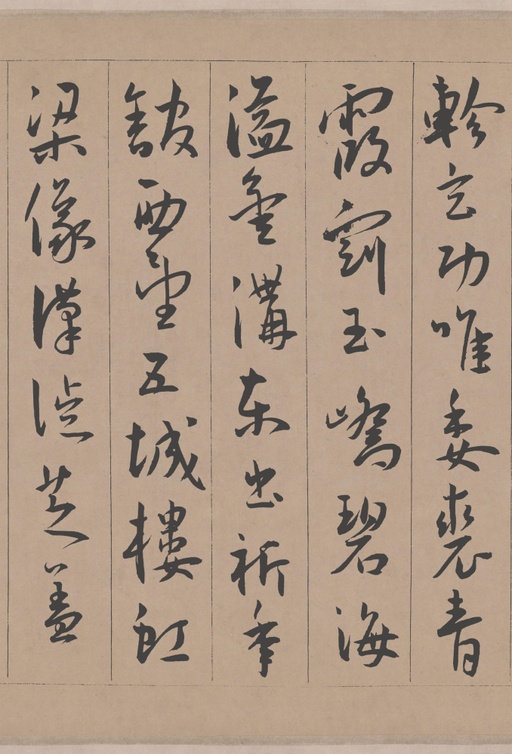 軫玄功唯委裘青
霞玉嶠碧海
溢金溝東出祈年
館西望五城樓虹
梁像漢徙芝蓋